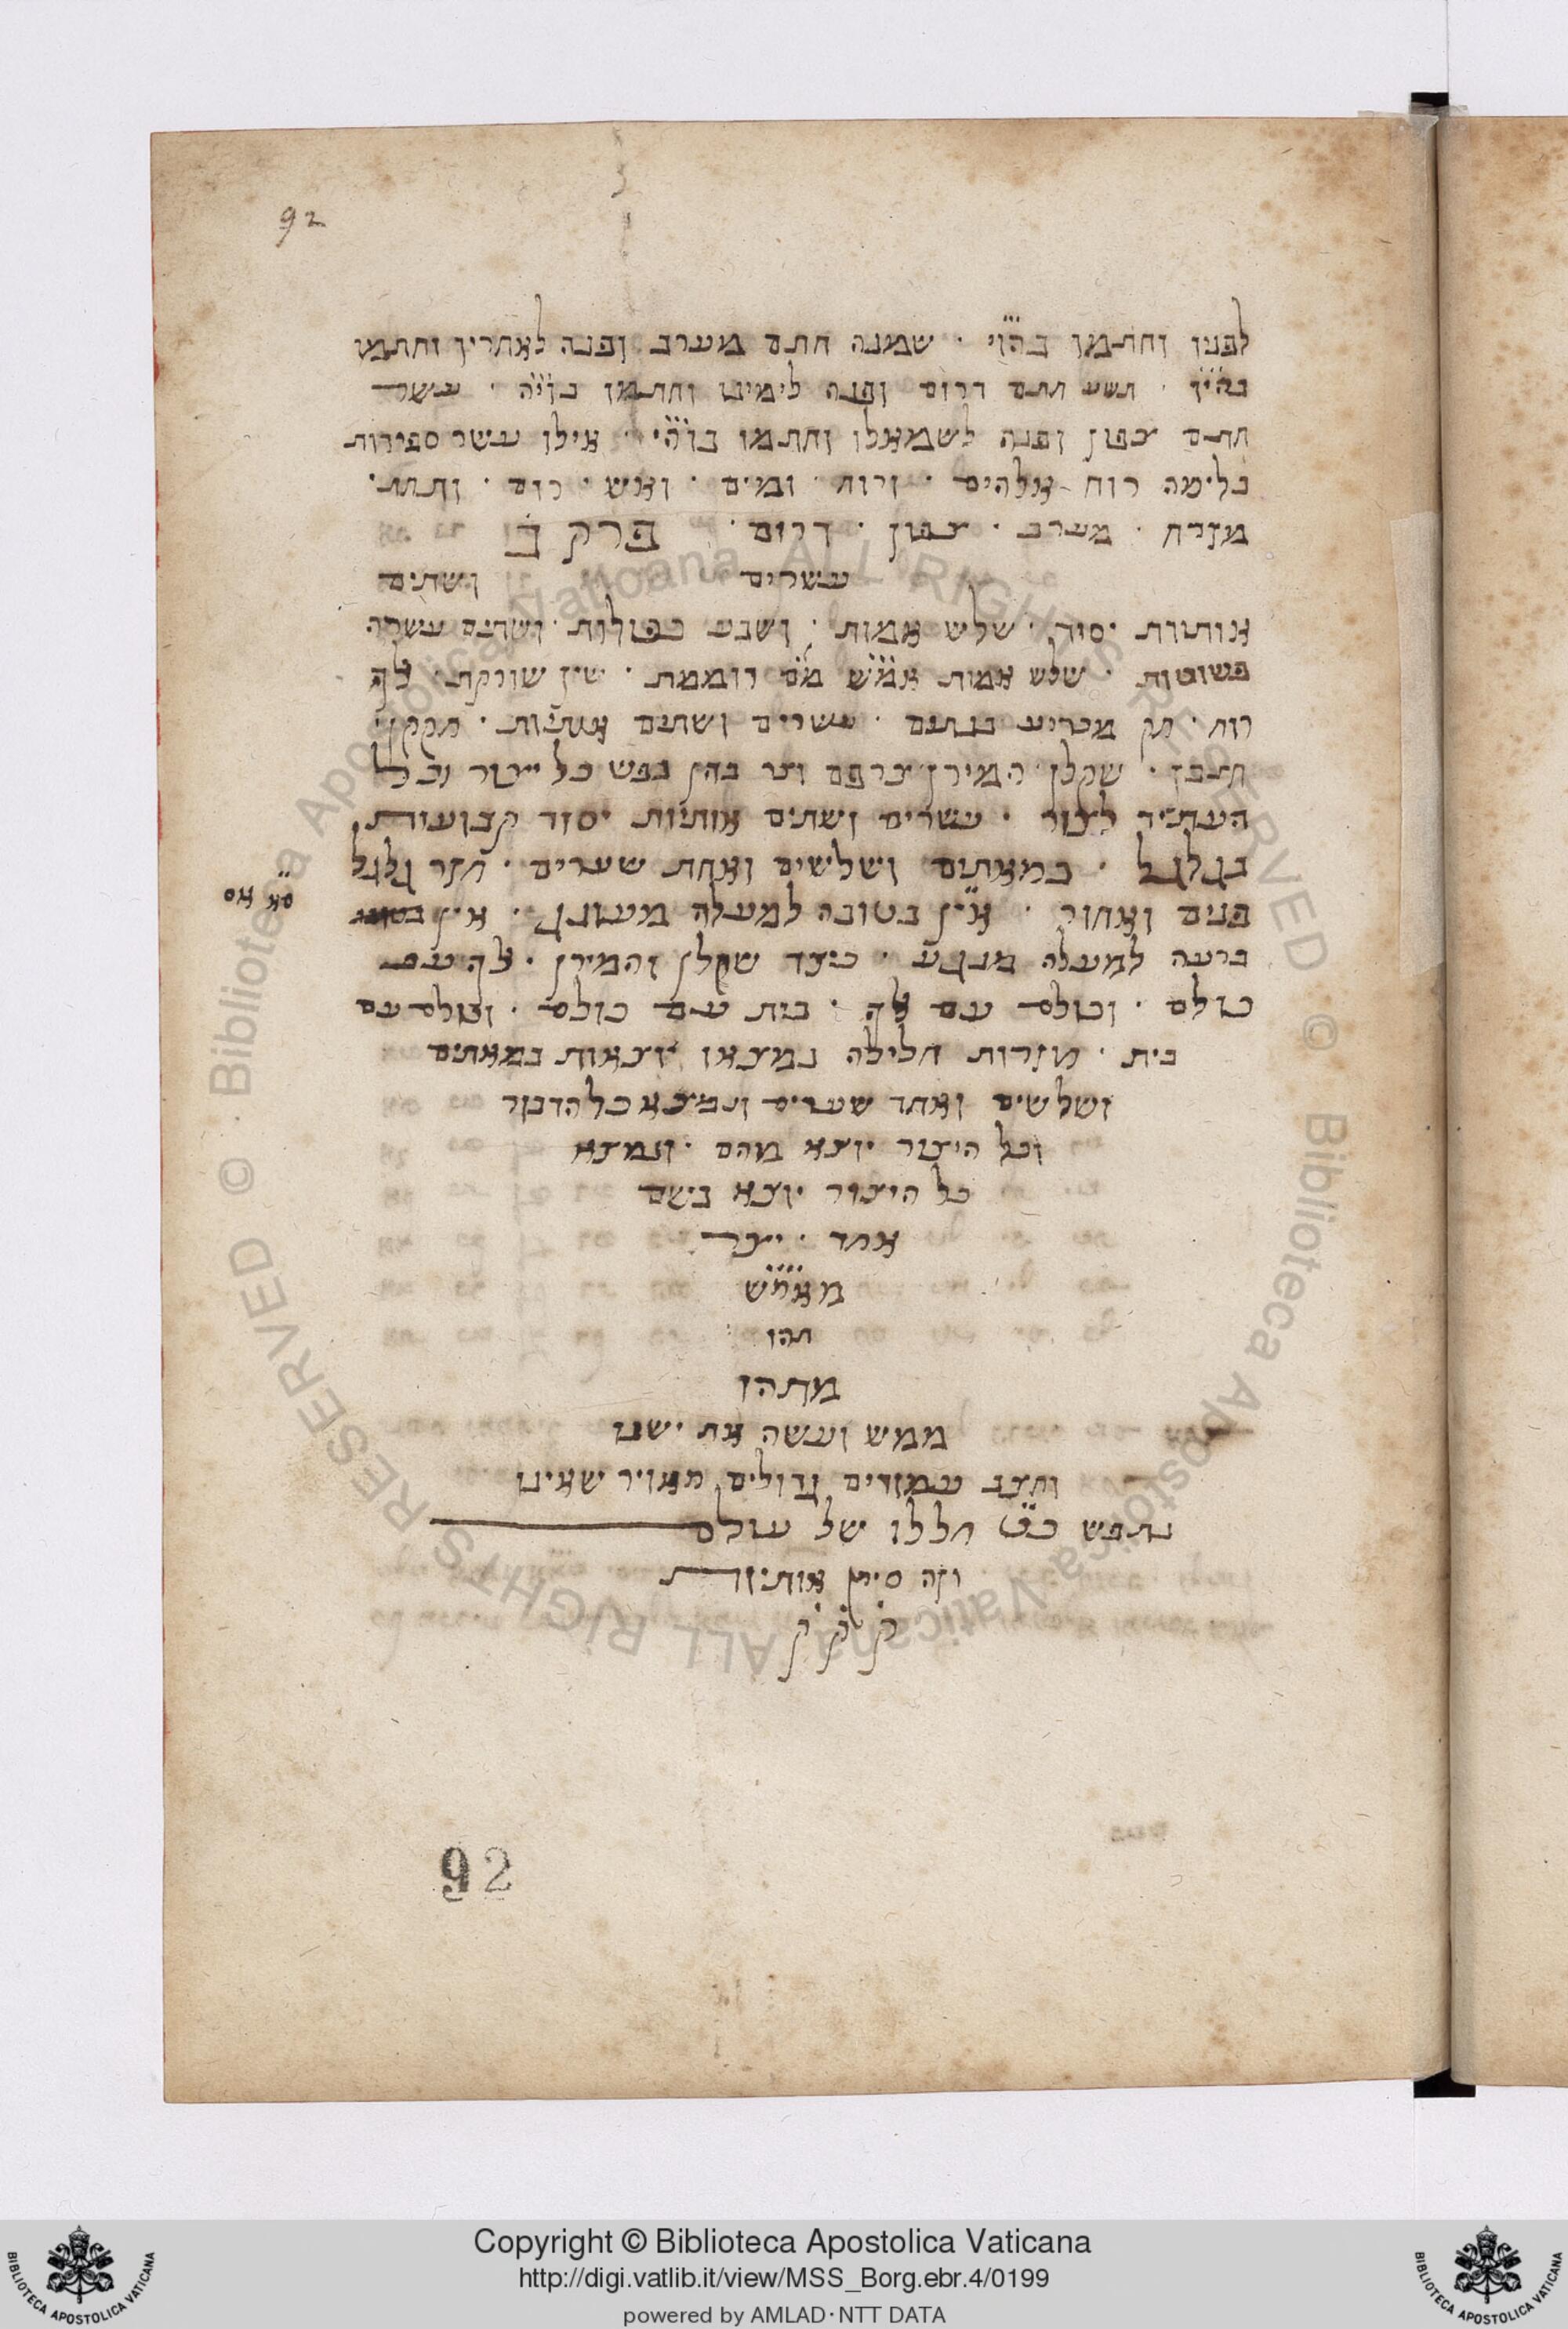 92
לפניו וחתמו בהוי · שמנה חתם מערב ופנה לאחריו וחתמו
בהיו · תשע חתם דרום ופנה לימינו וחתמו בויה · עשר
חתם צפון ופנה לשמאלו וחתמו בוהי · אילו עשר ספירות
בלימה רוח אלהים · ורוח · ומים · ואש · רום · ותחת ·
מזרח · מערב · צפון · דרום · פרק ב
עשרים ושתים
אותיות יסוד · שלש אמות · ושבע כפולות · ושתים עשרה
פשוטות · שלש אמות אמש מם דוממת · שין שורקת · אלף
רוח · חק מכריע בנתים · עשרים ושתים אותיות · חקקן
חצבן · שקלן המירן צרפם וצר בהן נפש כל יצור וכל
העתיד לצור · עשרים ושתים אותיות יסוד קבועות
בגלגל · במאתים ושלשים ואחת שערים · חזר גלגל
פנים ואחור · אין בטובה למעלה מעונג · אין
ברעה למעלה מנגע · כיצד שקלן והמירן · אלף עם
כולם · וכולם עם אלף · בית עם כולם · וכולם עם
בית · חוזרות חלילה נמצאו יוצאות במאתים
ושלשים ואחד שערים ונמצא כל הדבור
וכל היצור יוצא מהם · ונמצא
כל היצור יוצא בשם
אחד · יצר
מאמש
תהו
מתהו
ממש ועשה את ישנו
וחצב עמודים גדולים מאויר שאינו
נתפש חללו של עולם
וזה סימן אותיות
ק ק ק
92
Copyright © Biblioteca Apostolica Vaticana
http://digi.vatlib.it/view/MSS_Borg.ebr.4/0199
powered by AMLAD · NTT DATA